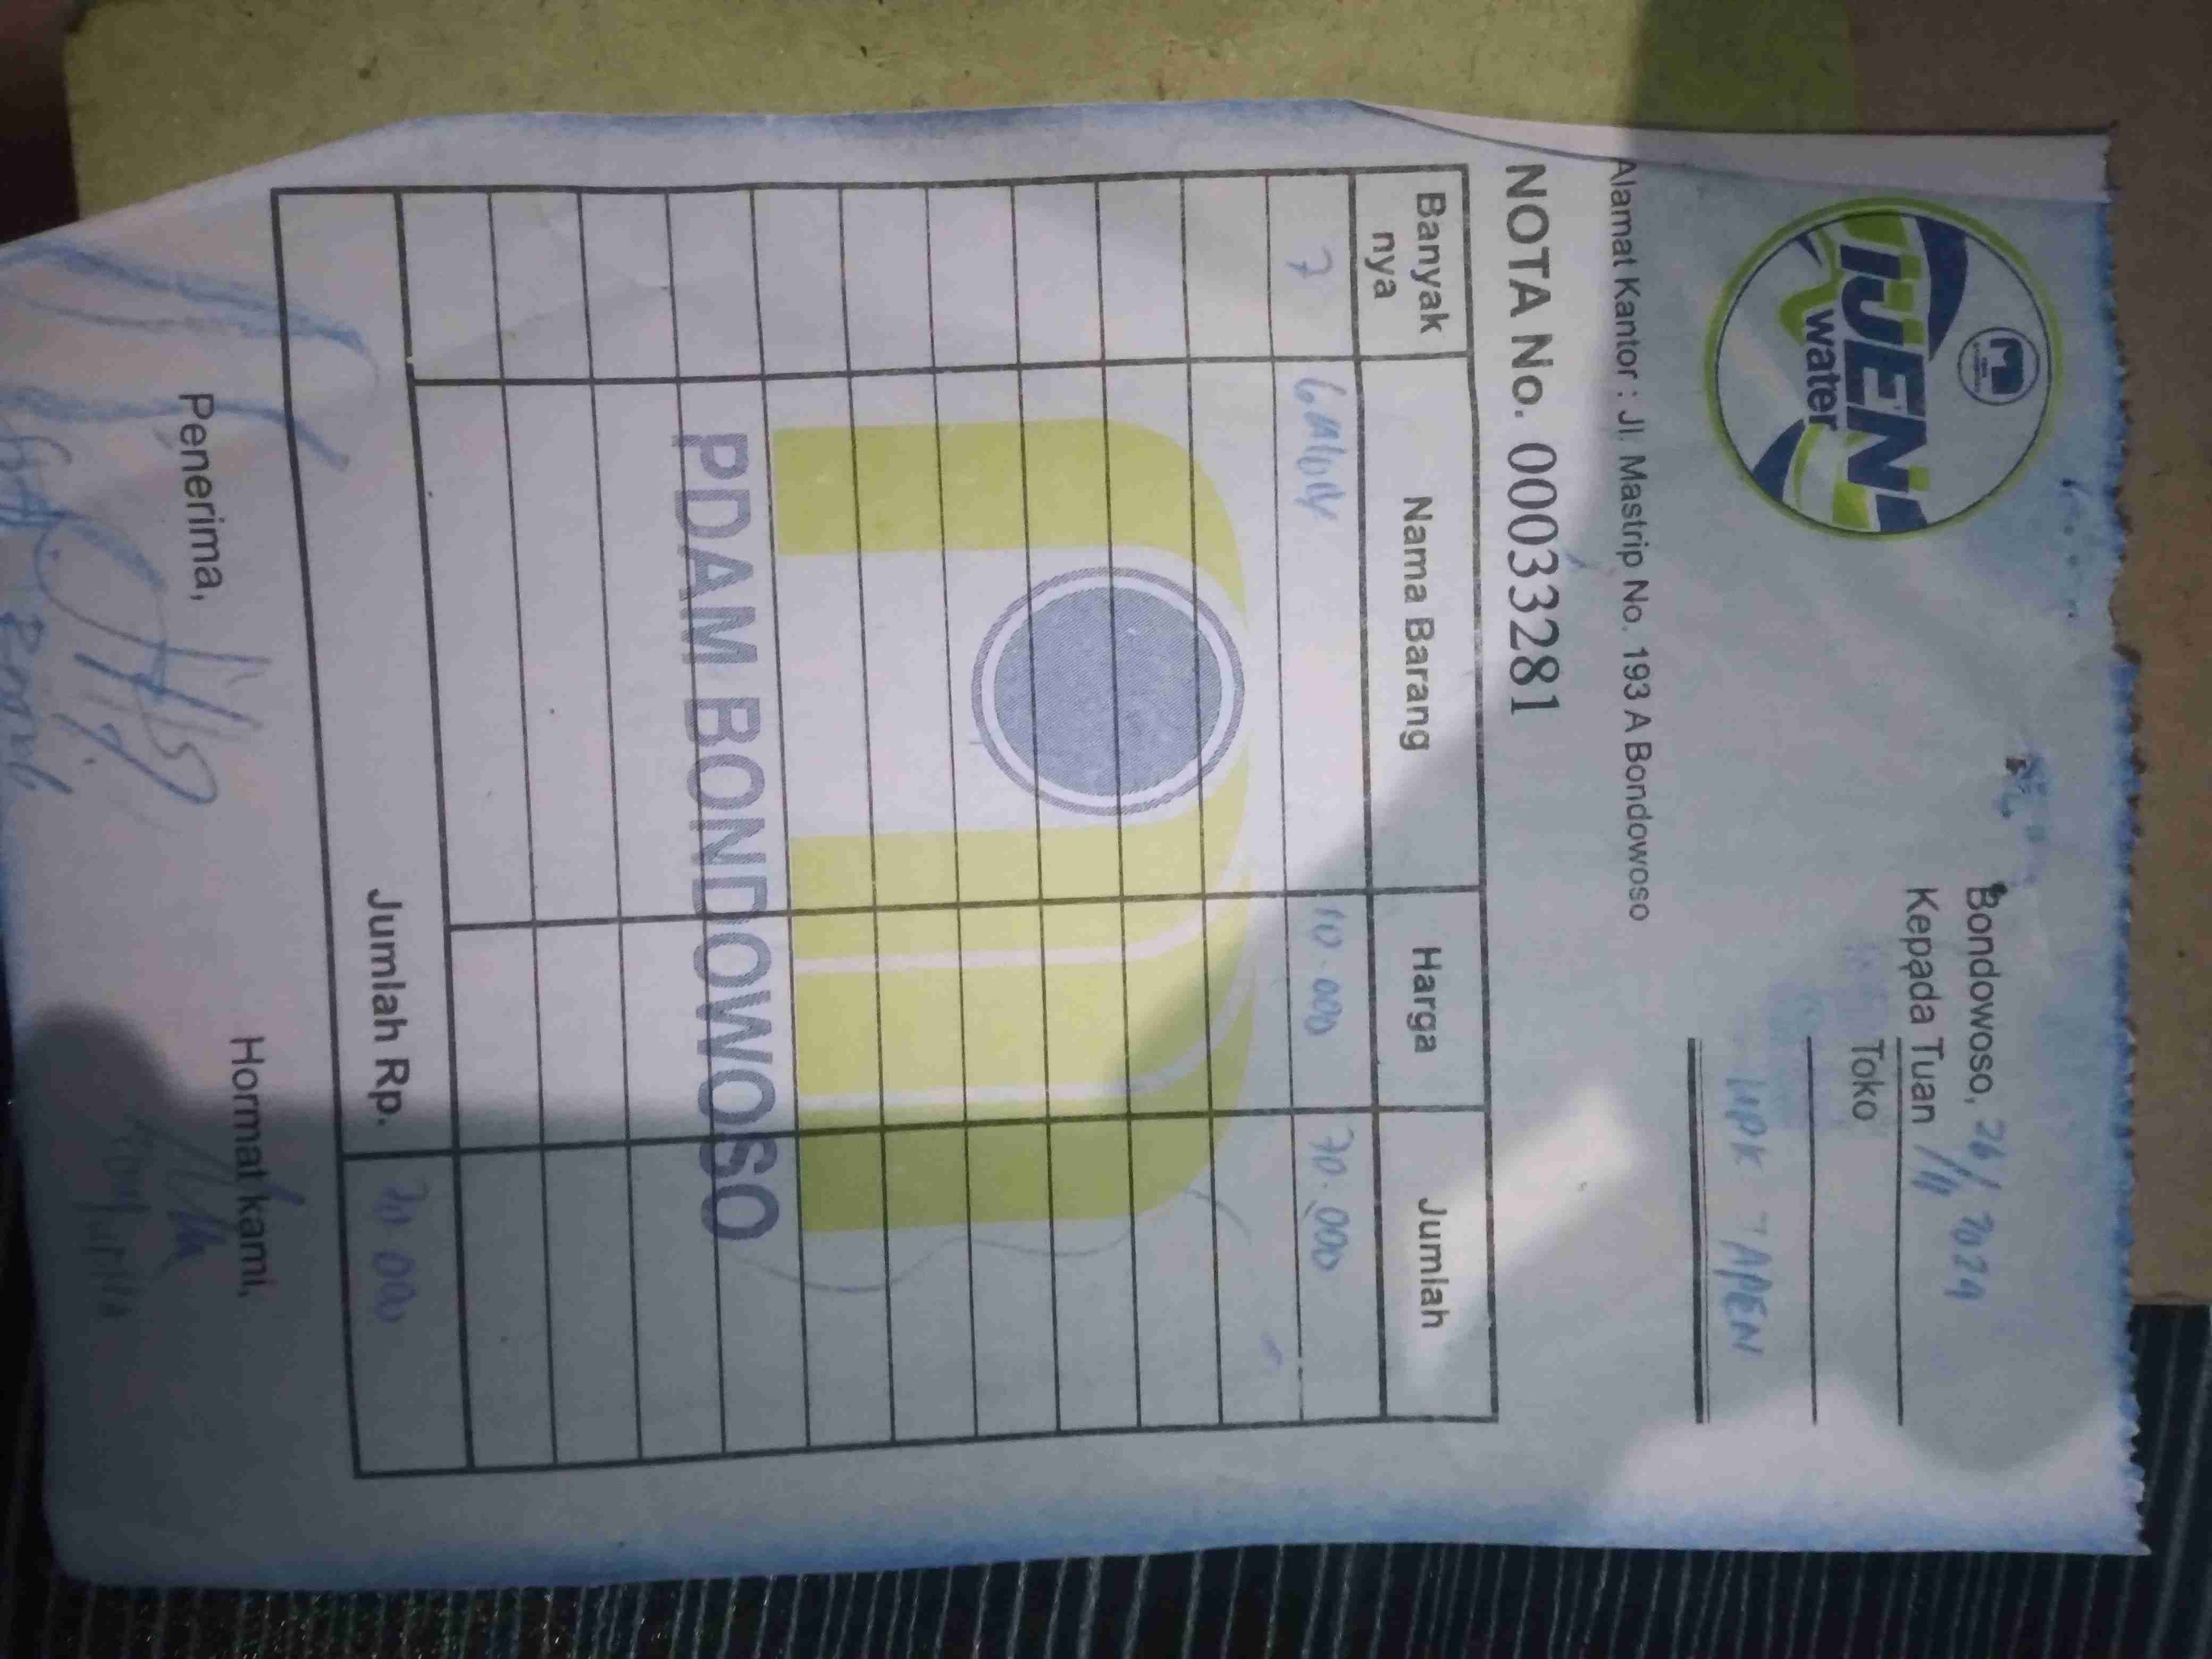 IJEN
water
Bondowoso, 26/11 2024
Kepada Tuan
Toko
UPK TAPEN
Alamat Kantor : Jl. Mastrip No. 193 A Bondowoso
NOTA No. 00033281
Banyak nya Nama Barang Harga Jumlah
7 GALON 10.000 70.000
PDAM BONDOWOSO
Jumlah Rp. 70.000
Penerima, Hormat kami,